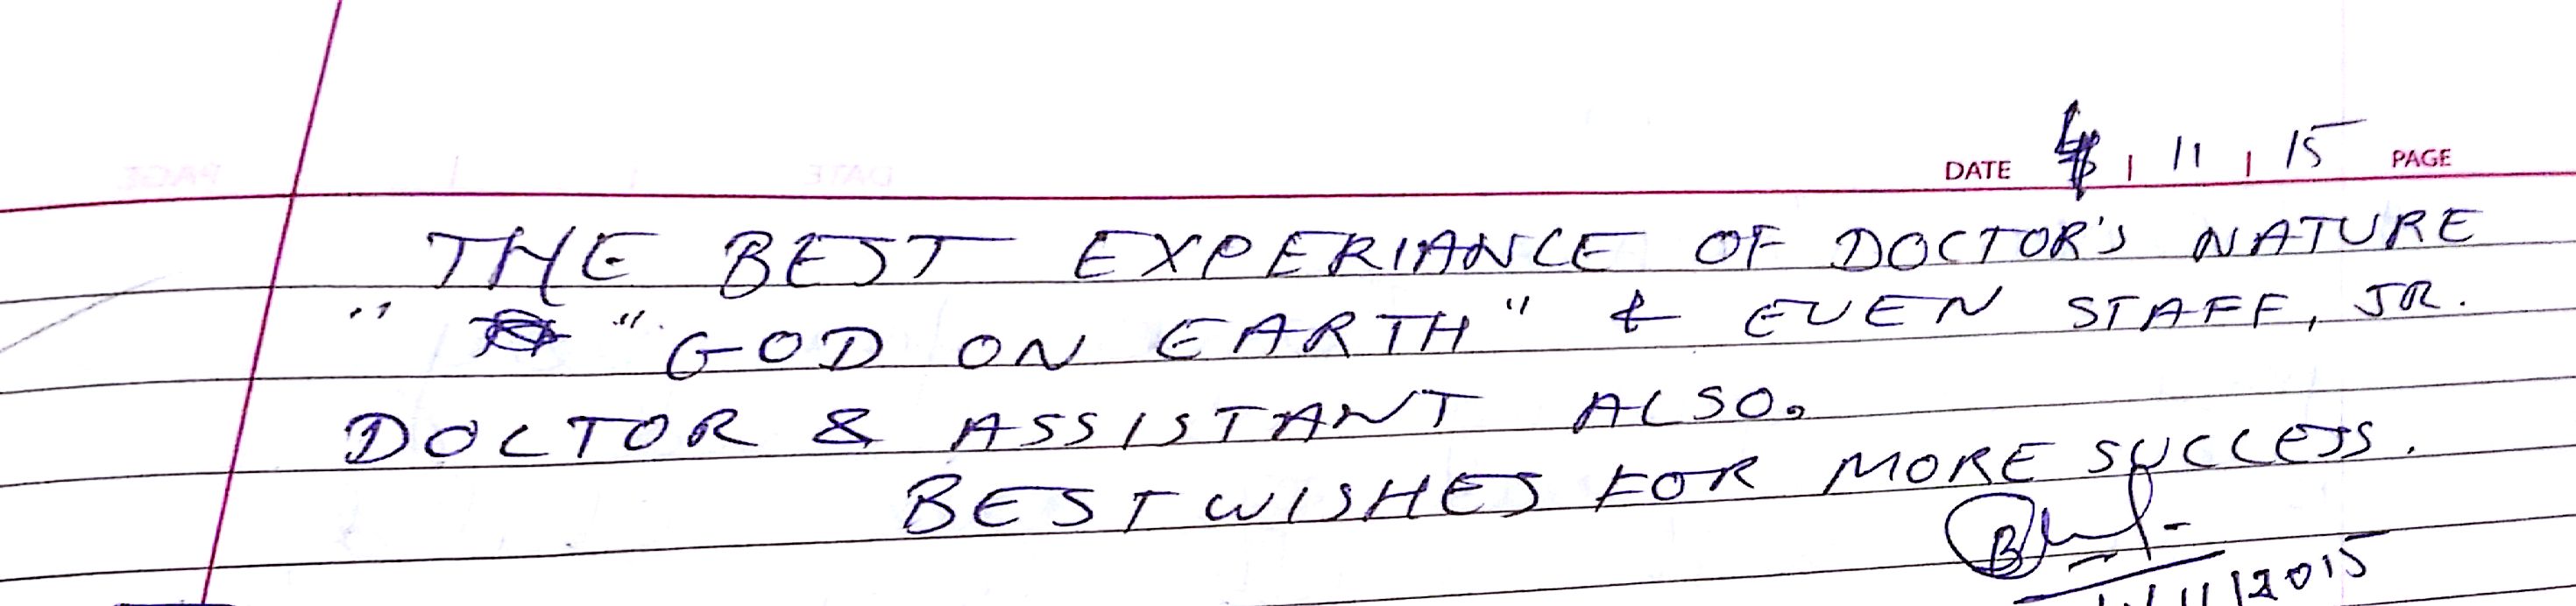 DATE | 11 | 15 PAGE
THE BEST EXPERIANCE OF DOCTOR'S NATURE
" "GOD ON EARTH" & EVEN STAFF, JR.
DOCTOR & ASSISTANT ALSO.
BEST WISHES FOR MORE SUCCESS.
/11/2015